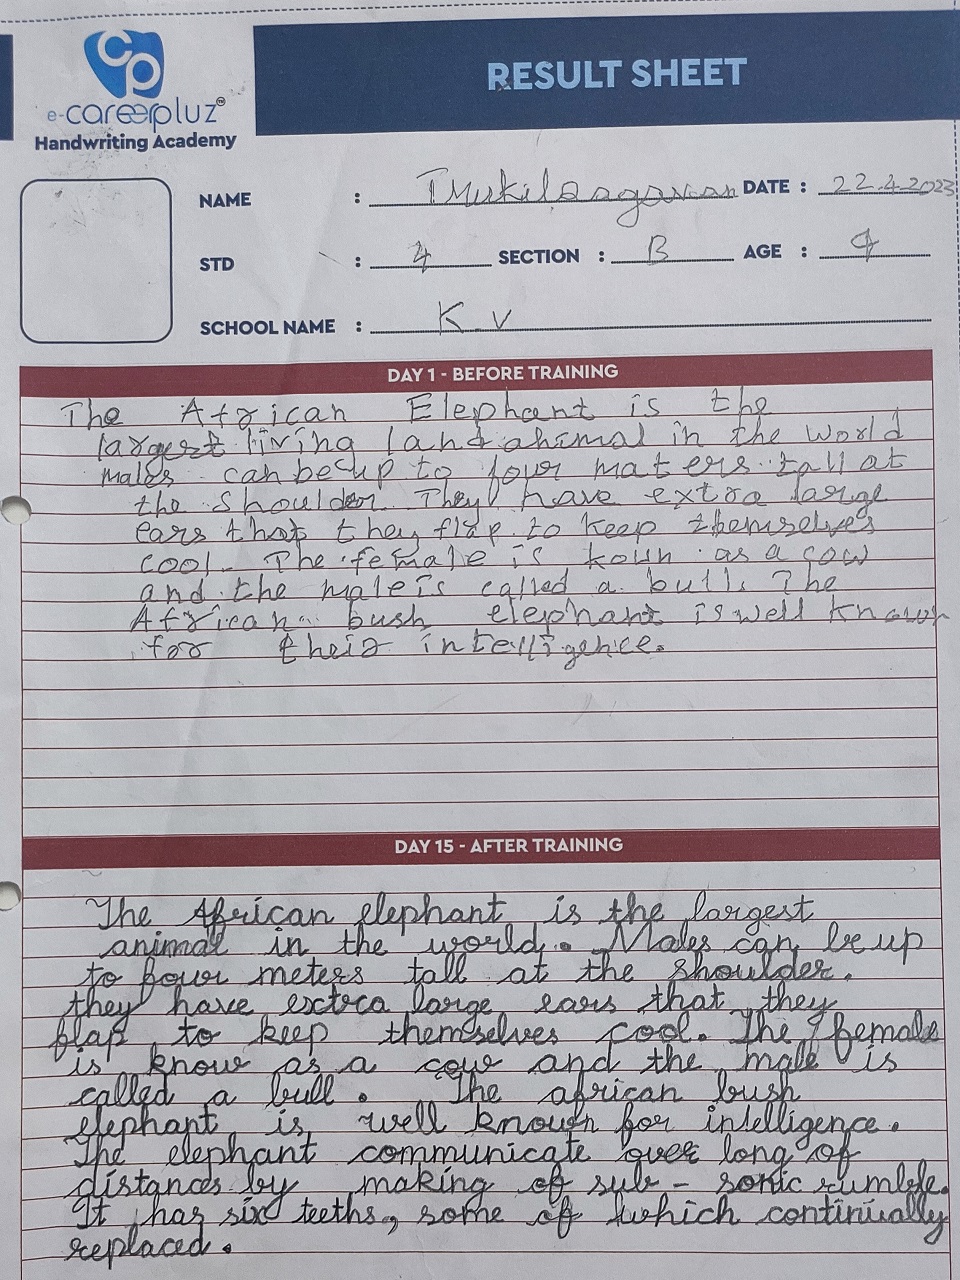 cp
RESULT SHEET
e-careerpluz™
Handwriting Academy
NAME : DATE : 22.4.2023
STD : 4 SECTION : B AGE : 9
SCHOOL NAME : K V
DAY 1 - BEFORE TRAINING
The African Elephant is the
largest living land animal in the world
males can be up to four maters tall at
the shoulder They have extra large
ears that they flap to keep themselves
cool. The female is koun as a cow
and the male is called a bull. The
African bush elephant is well known
for their intelligence.
DAY 15 - AFTER TRAINING
The African elephant is the largest
animal in the world. Males can be up
to four meters tall at the shoulder.
they have exctra large ears that they
flap to keep themselves cool. The female
is know as a cow and the male is
called a bull. The african bush
elephant is well known for intelligence.
The elephant communicate over long of
distances by making of sub - sonic rumble.
It has six teeths, some of which continually
replaced.